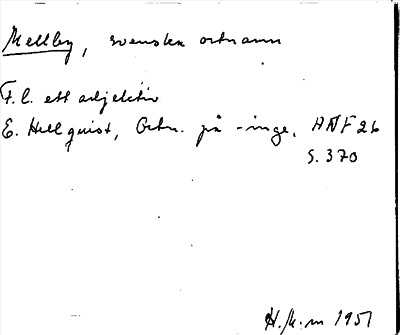 Mellby, svenska ortnamn
F.l. ett adjektiv
E. Hellquist, Ortn. på -inge, ANF 26
S. 370
H. /k. m 1951